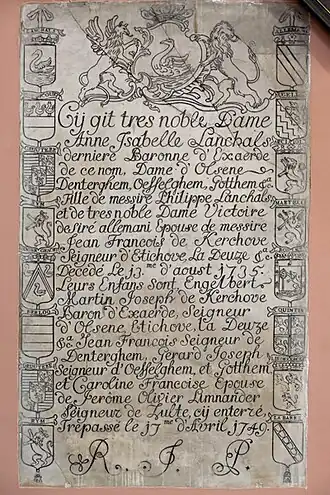 Cij git tres noble Dame
Anne Isabelle Lanchals
derniere Baronne d'Exaerde
de ce nom, Dame d'Olsene
Denterghem, Oesselghem, Potthem &c.
Fille de messire Philippe Lanchals
et de tres noble Dame Victoire
desiré allemani Epouse de messire
Jean Francois de Kerchove
Seigneur d'Etichove, La Deuze &c.
Décédé le 13.me d'aoust 1735.
Leurs Enfans Sont Engelbert
Martin Joseph de Kerchove
Baron d'Exaerde, Seigneur
d'Olsene, Etichove, La Deuze
&a Jean Francois Seigneur de
Denterghem, Gerard Joseph
Seigneur d'Oesselghem, et Potthem
et Caroline Francoise Epouse
de Jerôme Olivier Limnander
Seigneur de Zulte, cij enterzé,
Trépassé le 17.me d'Avril 1749.
R. I. P.